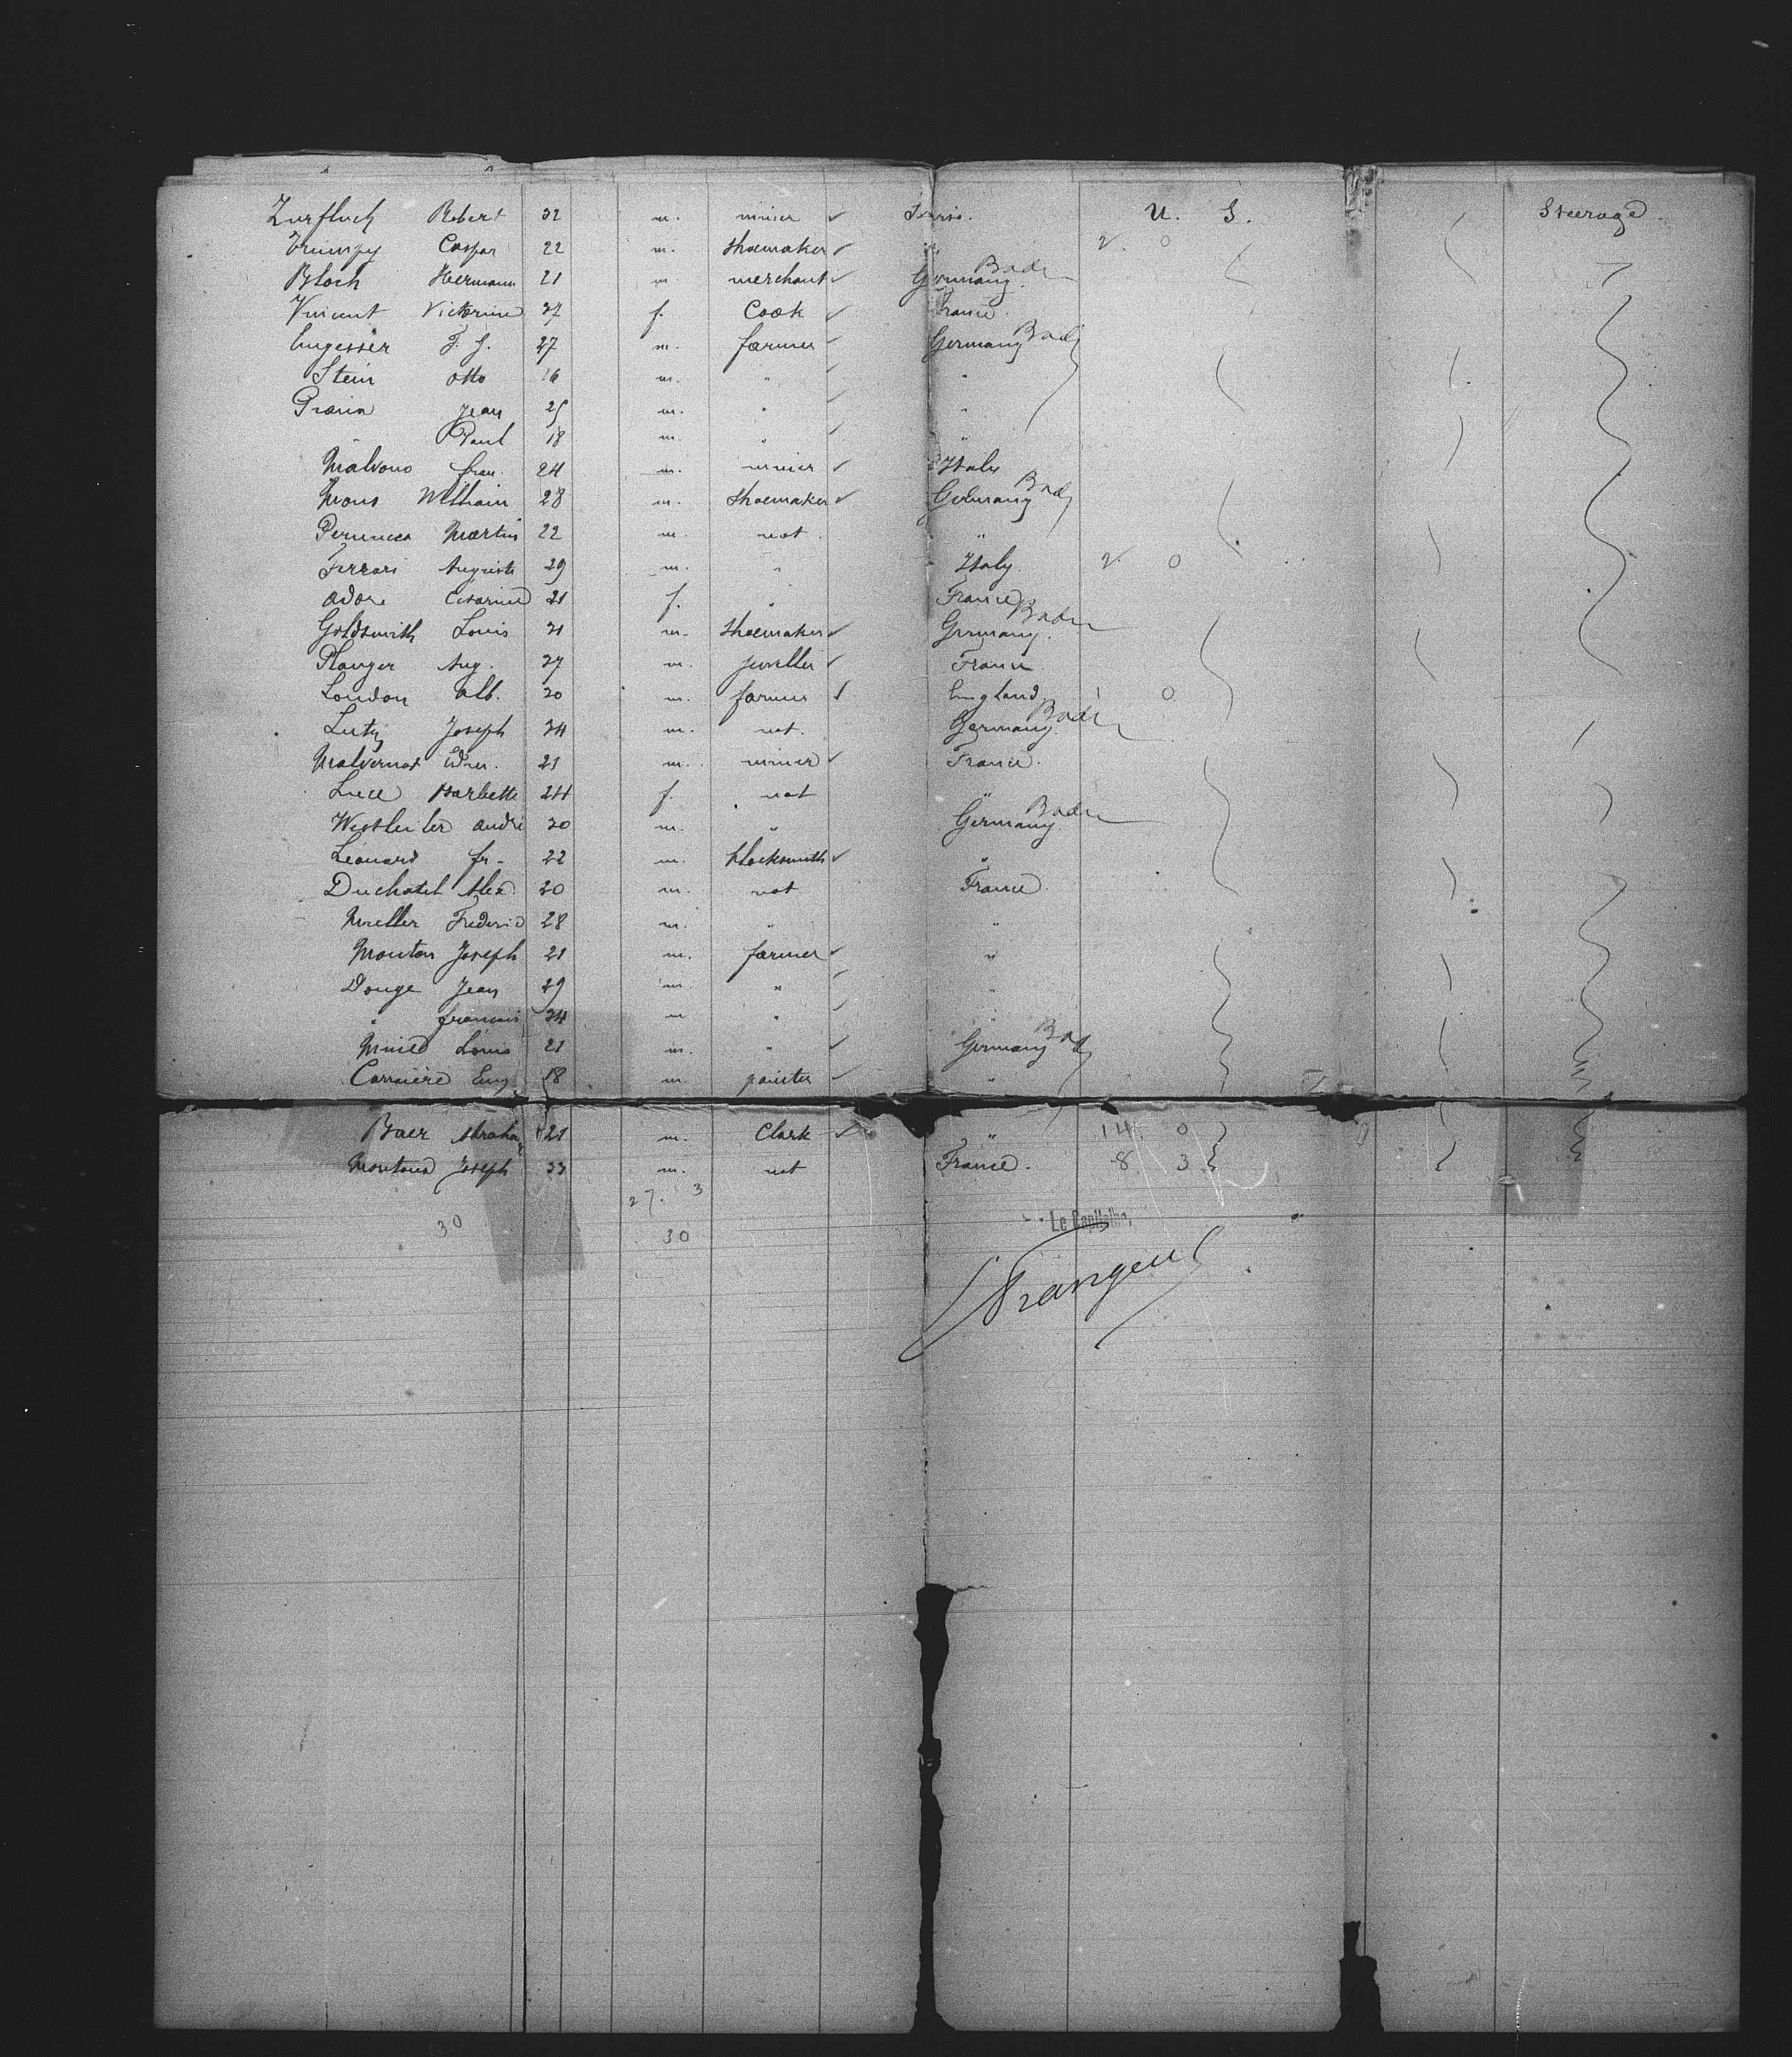 Zurfluch Robert 32 m. minier ✓ Swiss. U. S. Steerage.
Trumpy Caspar 22 m. shoemaker ✓ " 2. 0
Bloch Hermann 21 m. merchant ✓ Germany Baden
Vincent Victorine 37 f. Cook ✓ France
Engesser F. J. 27 m. farmer ✓ Germany Bad
Stein Otto 16 m. " ✓ "
Jean 25 m. " ✓ "
" Paul 18 m. " ✓ "
Malvono fran. 24 m. minier ✓ Italy
Mons William 28 m. shoemaker ✓ Germany Bad
Martin 22 m. not "
Ferrari Auguste 29 m. " Italy. 2. 0
Adore Cesarine 21 f. " France
Goldsmith Louis 31 m. shoemaker ✓ Germany. Baden
Planger Aug. 37 m. jeweller ✓ France
London Alb. 30 m. farmer ✓ England 1 0
Lutz Joseph 34 m. not. Germany Baden
Malvernat Edm. 21 m. minier ✓ France.
Luce Barbette 24 f. not "
André 30 m. " Germany Baden
Léonard fr- 22 m. blacksmith ✓ "
Duchatel Alex. 20 m. not France
Mueller Frederic 28 m. " "
Mouton Joseph 21 m. farmer ✓ "
Douge Jean 29 m. " ✓ "
" francois 34 m " ✓ "
Louis 21 m. " ✓ Germany Bad
Carrière Eug. 18 m. painter ✓ "
Baer Abraham 21 m. Clark ✓ " 14. 0
Joseph 33 m. not France. 8 3
27. 3
30 30
Le Capitaine,